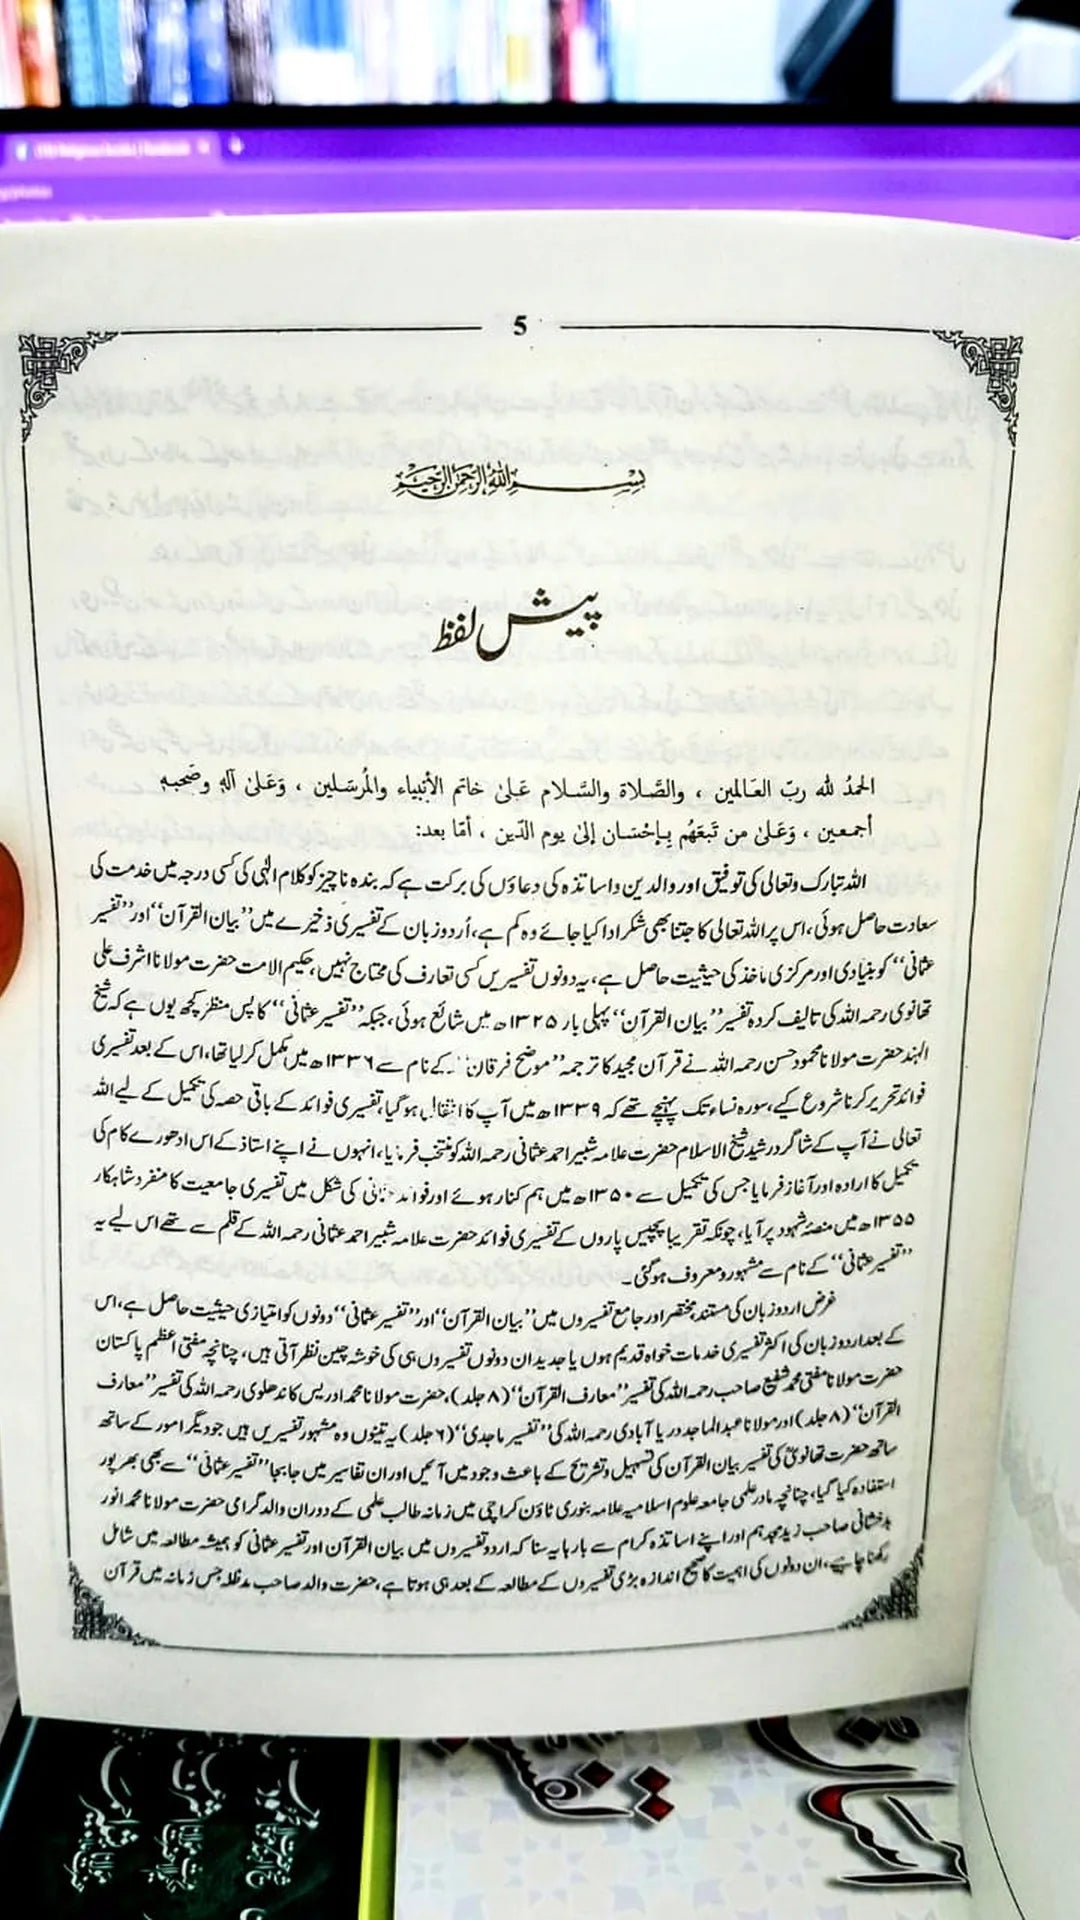 5
بسم الله الرحمن الرحيم
پیش لفظ
الحمدُ لله ربّ العَـالمين ، والصَّلاة والسَّلام عَلىٰ خاتم الأنبياء والمُرسَلين ، وَعَلىٰ آلهٖ وصَحبهٖ
أجمعين ، وَعَلىٰ من تَبعَهُم بإحْسَان إلىٰ يوم الدّين ، أمّا بعد:
اللہ تبارک وتعالی کی توفیق اور والدین واساتذہ کی دعاؤں کی برکت ہے کہ بندہ ناچیز کو کلام الٰہی کی کسی درجہ میں خدمت کی
سعادت حاصل ہوئی، اس پر اللہ تعالی کا جتنا بھی شکر ادا کیا جائے وہ کم ہے، اُردو زبان کے تفسیری ذخیرے میں ’’بیان القرآن‘‘ اور ’’تفسیر
عثمانی‘‘ کو بنیادی اور مرکزی ماخذ کی حیثیت حاصل ہے، یہ دونوں تفسیریں کسی تعارف کی محتاج نہیں، حکیم الامت حضرت مولانا اشرف علی
تھانوی رحمہ اللہ کی تالیف کردہ تفسیر ’’بیان القرآن‘‘ پہلی بار ۱۳۲۵ھ میں شائع ہوئی، جبکہ ’’تفسیر عثمانی‘‘ کا پس منظر کچھ یوں ہے کہ شیخ
الہند حضرت مولانا محمود حسن رحمہ اللہ نے قرآن مجید کا ترجمہ ’’موضح فرقان‘‘ کے نام سے ۱۳۳۶ھ میں مکمل کر لیا تھا، اس کے بعد تفسیری
فوائد تحریر کرنا شروع کیے، سورہ نساء تک پہنچے تھے کہ ۱۳۳۹ھ میں آپ کا انتقال ہو گیا، تفسیری فوائد کے باقی حصہ کی تکمیل کے لیے اللہ
تعالی نے آپ کے شاگرد رشید شیخ الاسلام حضرت علامہ شبیر احمد عثمانی رحمہ اللہ کو منتخب فرمایا، انہوں نے اپنے استاذ کے اس ادھورے کام کی
تکمیل کا ارادہ اور آغاز فرمایا جس کی تکمیل سے ۱۳۵۰ھ میں ہم کنار ہوئے اور فوائد عثمانی کی شکل میں تفسیری جامعیت کا منفرد شاہکار
۱۳۵۵ھ میں منصۂ شہود پر آیا، چونکہ تقریبا پچپیس پاروں کے تفسیری فوائد حضرت علامہ شبیر احمد عثمانی رحمہ اللہ کے قلم سے تھے اس لیے یہ
’’تفسیر عثمانی‘‘ کے نام سے مشہور و معروف ہو گئی۔
غرض اردو زبان کی مستند، مختصر اور جامع تفسیروں میں ’’بیان القرآن‘‘ اور ’’تفسیر عثمانی‘‘ دونوں کو امتیازی حیثیت حاصل ہے، اس
کے بعد اردو زبان کی اکثر تفسیری خدمات خواہ قدیم ہوں یا جدید ان دونوں تفسیروں ہی کی خوشہ چین نظر آتی ہیں، چنانچہ مفتی اعظم پاکستان
حضرت مولانا مفتی محمد شفیع صاحب رحمہ اللہ کی تفسیر ’’معارف القرآن‘‘ (۸ جلد)، حضرت مولانا محمد ادریس کاندھلوی رحمہ اللہ کی تفسیر ’’معارف
القرآن‘‘ (۸ جلد) اور مولانا عبد الماجد دریا آبادی رحمہ اللہ کی ’’تفسیر ماجدی‘‘ (۶ جلد) یہ تینوں وہ مشہور تفسیریں ہیں جو دیگر امور کے ساتھ
ساتھ حضرت تھانویؒ کی تفسیر بیان القرآن کی تسہیل و تشریح کے باعث وجود میں آئیں اور ان تفاسیر میں جابجا ’’تفسیر عثمانی‘‘ سے بھی بھر پور
استفادہ کیا گیا، چنانچہ مادر علمی جامعہ علوم اسلامیہ علامہ بنوری ٹاؤن کراچی میں زمانہ طالب علمی کے دوران والد گرامی حضرت مولانا محمد انور
بدخشانی صاحب زید مجدہم اور اپنے اساتذہ کرام سے بارہا یہ سنا کہ اردو تفسیروں میں بیان القرآن اور تفسیر عثمانی کو ہمیشہ مطالعہ میں شامل
رکھنا چاہیے، ان دونوں کی اہمیت کا صحیح اندازہ بڑی تفسیروں کے مطالعہ کے بعد ہی ہوتا ہے، حضرت والد صاحب مدظلہ جس زمانہ میں قرآن